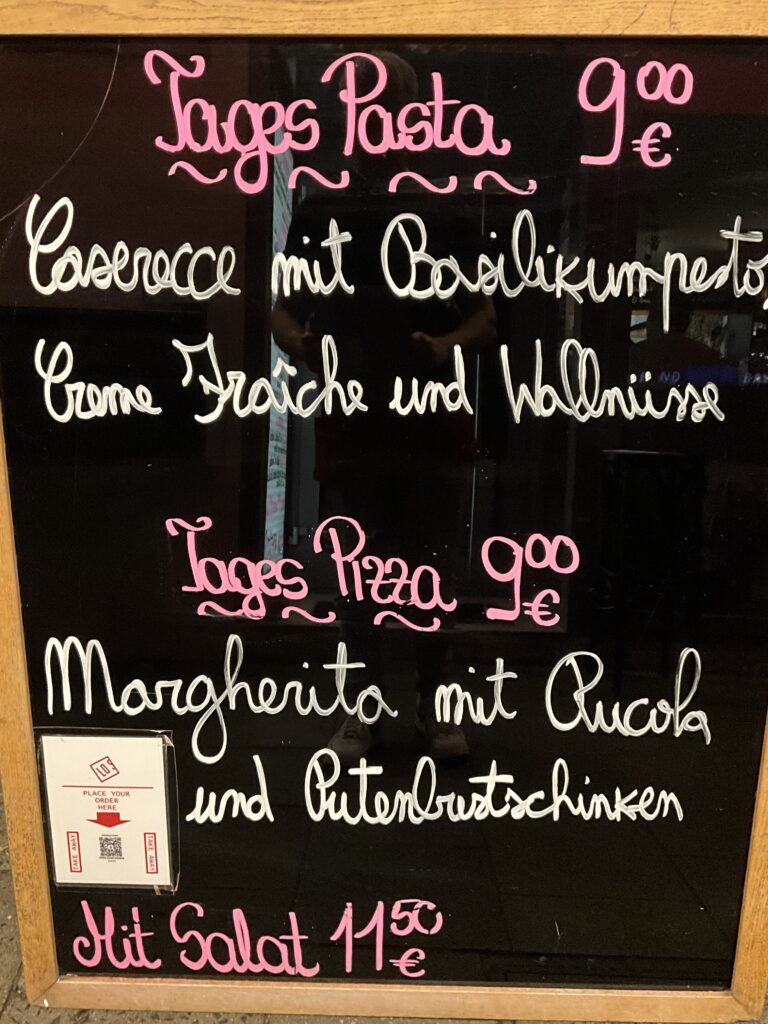 Tages Pasta 9⁰⁰ €
Caserecce mit Basilikumpesto,
Creme Fraîche und Wallnüsse
Tages Pizza 9⁰⁰ €
Margherita mit Rucola
und Putenbrustschinken
PLACE YOUR
ORDER
HERE
TAKE AWAY
TAKE AWAY
Mit Salat 11⁵⁰ €